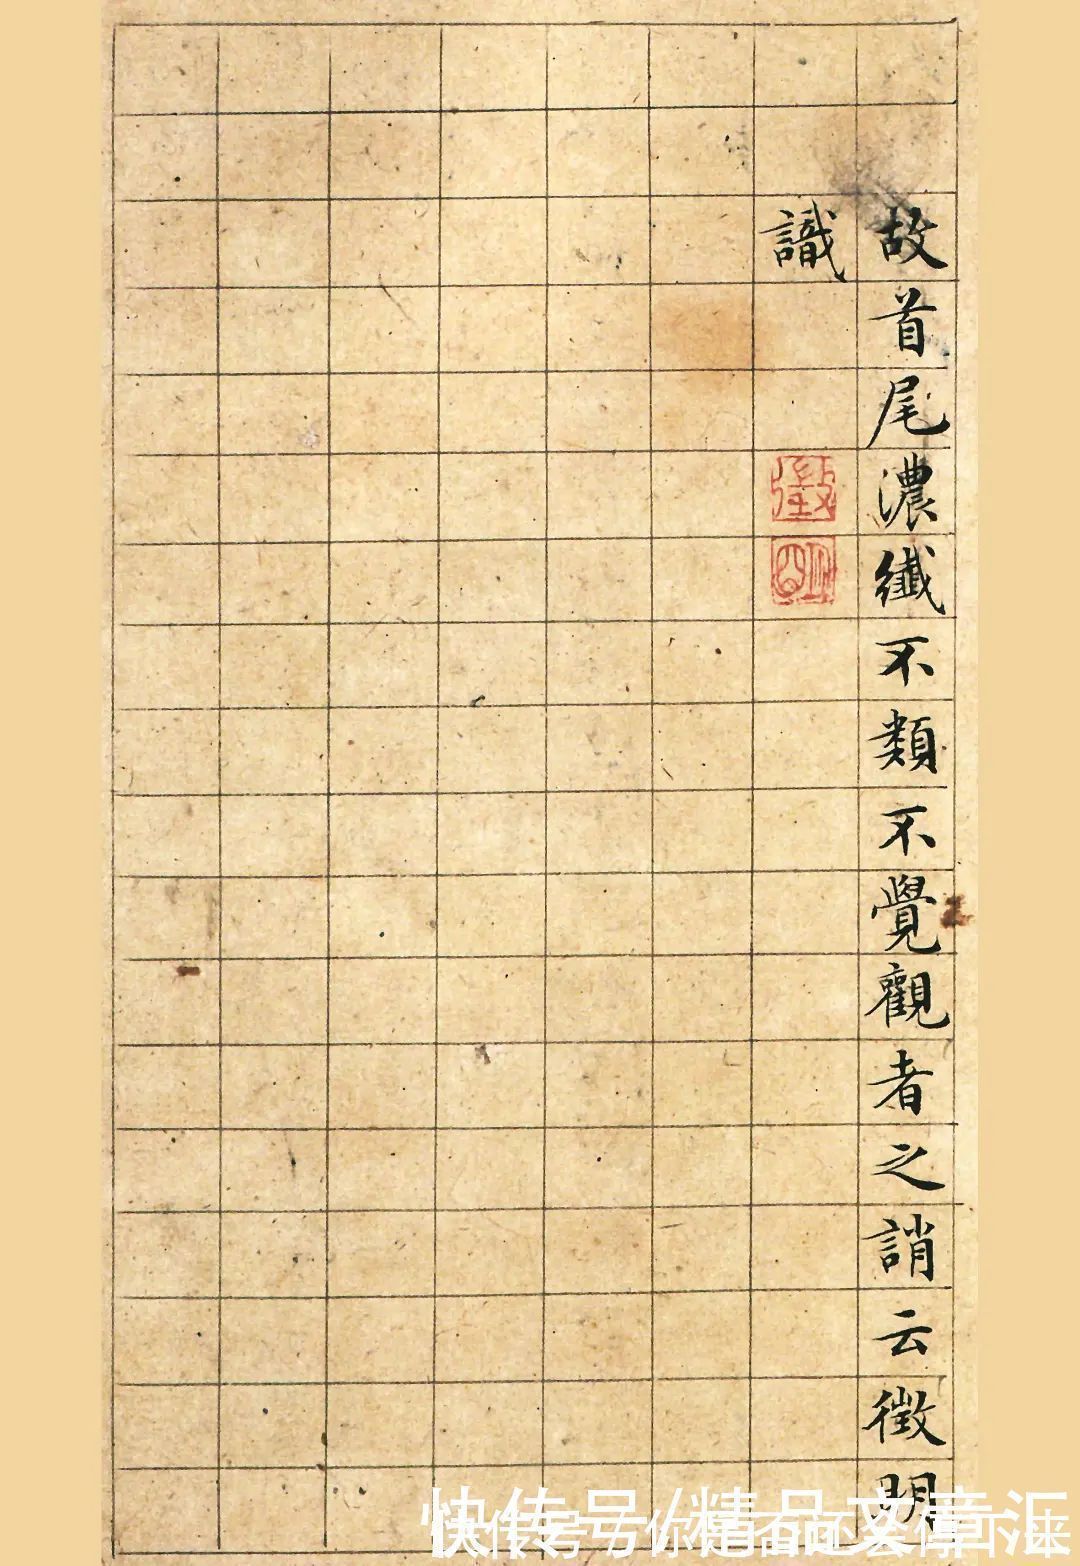 故首尾濃纖不類不覺觀者之誚云徵明
識
徵
明
快传号/精品文章汇